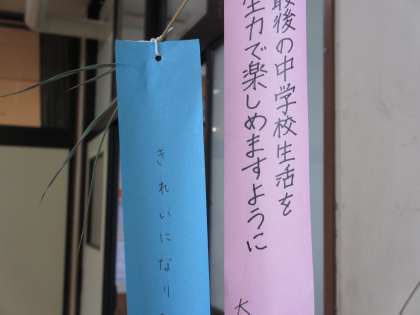 最後の中学校生活を
全力で楽しめますように
きれいになり